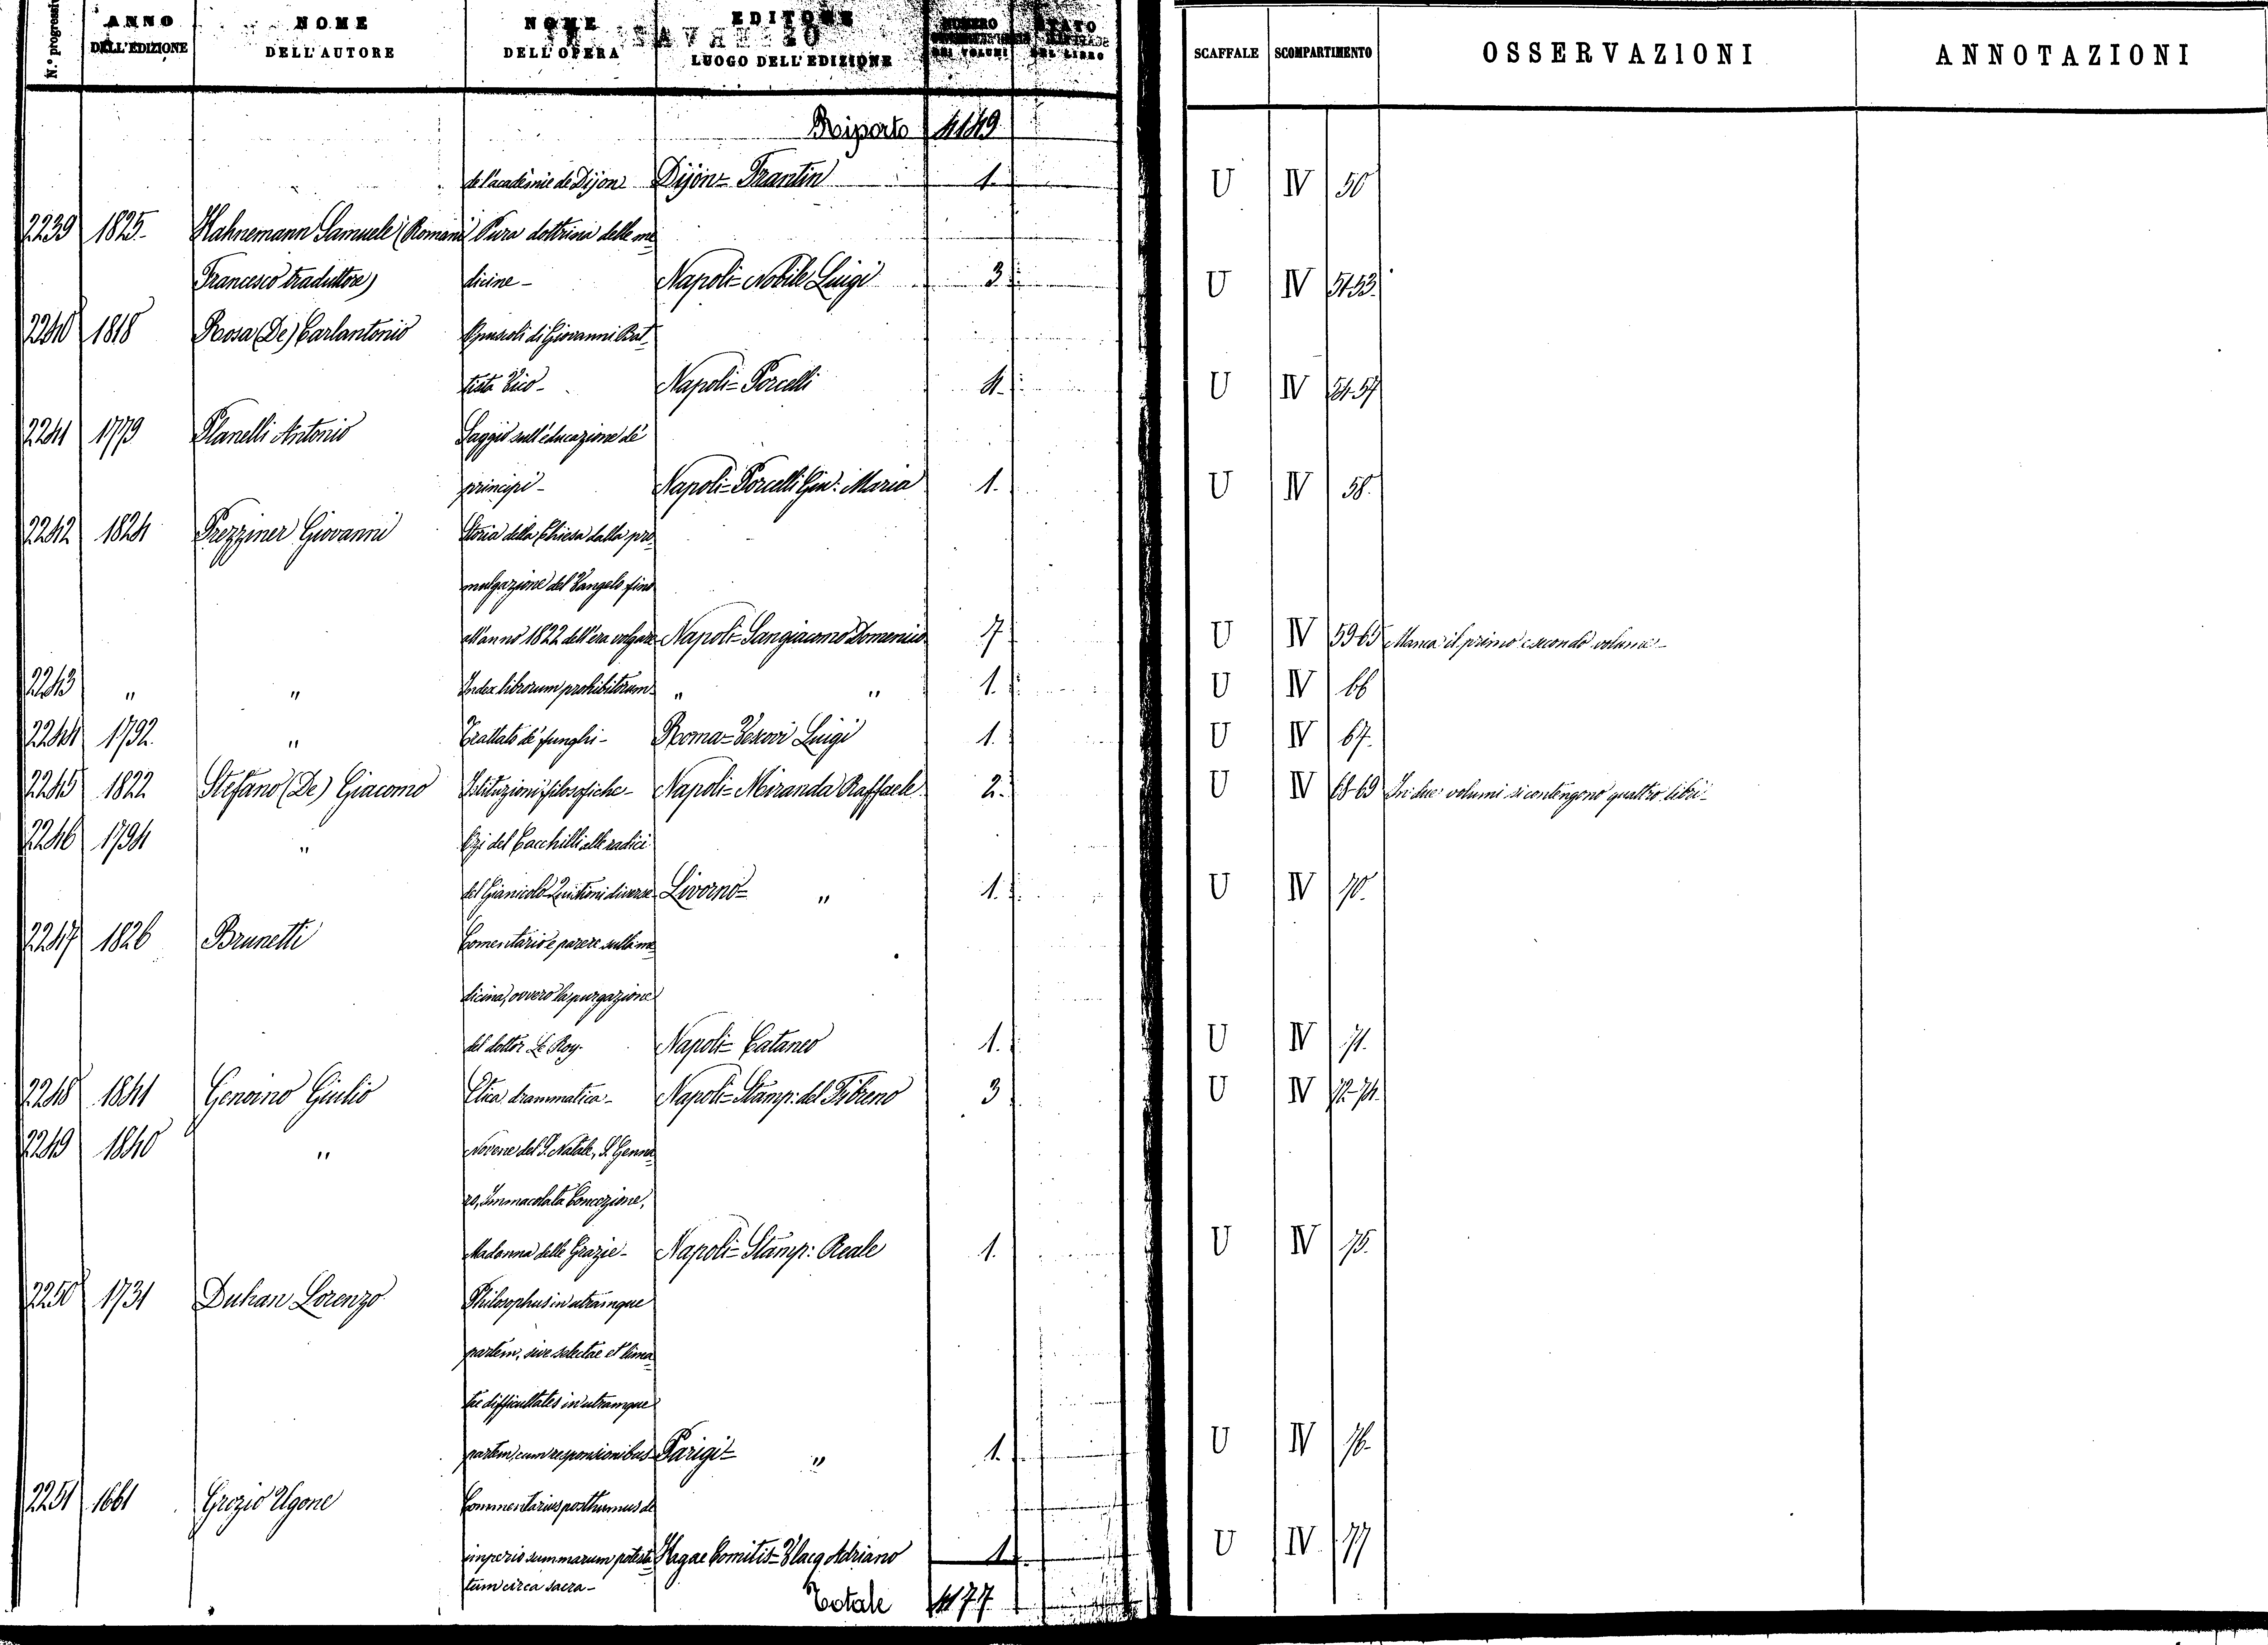 N.° progressivo ANNO DELL'EDIZIONE NOME DELL'AUTORE NOME DELL'OPERA EDITORE LUOGO DELL'EDIZIONE NUMERO DEI VOLUMI STATO DEL LIBRO SCAFFALE SCOMPARTIMENTO OSSERVAZIONI ANNOTAZIONI
Riporto 4149
de l'académie de Dijon Dijon= Frantin 1. U IV 50
2239 1825 Hahnemann Samuele (Romani Pura dottrina delle me
Francesco traduttore) dicine- Napoli= Nobile Luigi 3 U IV 51-53.
2240 1818 Rosa (De) Carlantonio Opuscoli di Giovanni Bat
tista Vico- Napoli= Porcelli 4. U IV 54-57
2241 1779 Planelli Antonio Saggio sull'educazione de'
principi- Napoli= Porcelli Giu: Maria 1. U IV 58.
2242 1824 Prezziner Giovanni Storia della Chiesa dalla pro
mulgazione del Vangelo fino
all'anno 1822 dell'era volgare Napoli= Sangiacomo Domenico 7 U IV 59-65 Manca il primo e secondo volume-
2243 " " Index librorum prohibitorum " " 1. U IV 66
2244 1792. " Trattato de' funghi- Roma= Vescovi Luigi 1. U IV 67.
2245 1822 Stefano (De) Giacomo Istituzioni filosofiche- Napoli= Miranda Raffaele 2. U IV 68-69 In due volumi si contengono quattro libri-
2246 1794 " Ozi del Cacchilli alle radici
del Gianicolo Quistioni diverse Livorno= " 1. U IV 70.
2247 1826 Brunetti Comentario e parere sulla me
dicina, ovvero la purgazione
del dottor Le Roy. Napoli= Cataneo 1. U IV 71.
2248 1841 Genoino Giulio Etica drammatica- Napoli= Stamp: del Fibreno 3 U IV 72-74.
2249 1840 " Novene del S. Natale, S. Genna
ro, Immacolata Concezione,
Madonna delle Grazie- Napoli= Stamp: Reale 1. U IV 75.
2250 1731 Duhan Lorenzo Philosophus in utramque
partem, sive selectae et lima
tae difficultates in utramque
partem, cum responsionibus Parigi= " 1. U IV 76.
2251 1661 Grozio Ugone Commentarius posthumus de
imperio summarum potesta Hagae Comitis= Vlacq Adriano 1 U IV 77
tum circa sacra-
Totale 4177